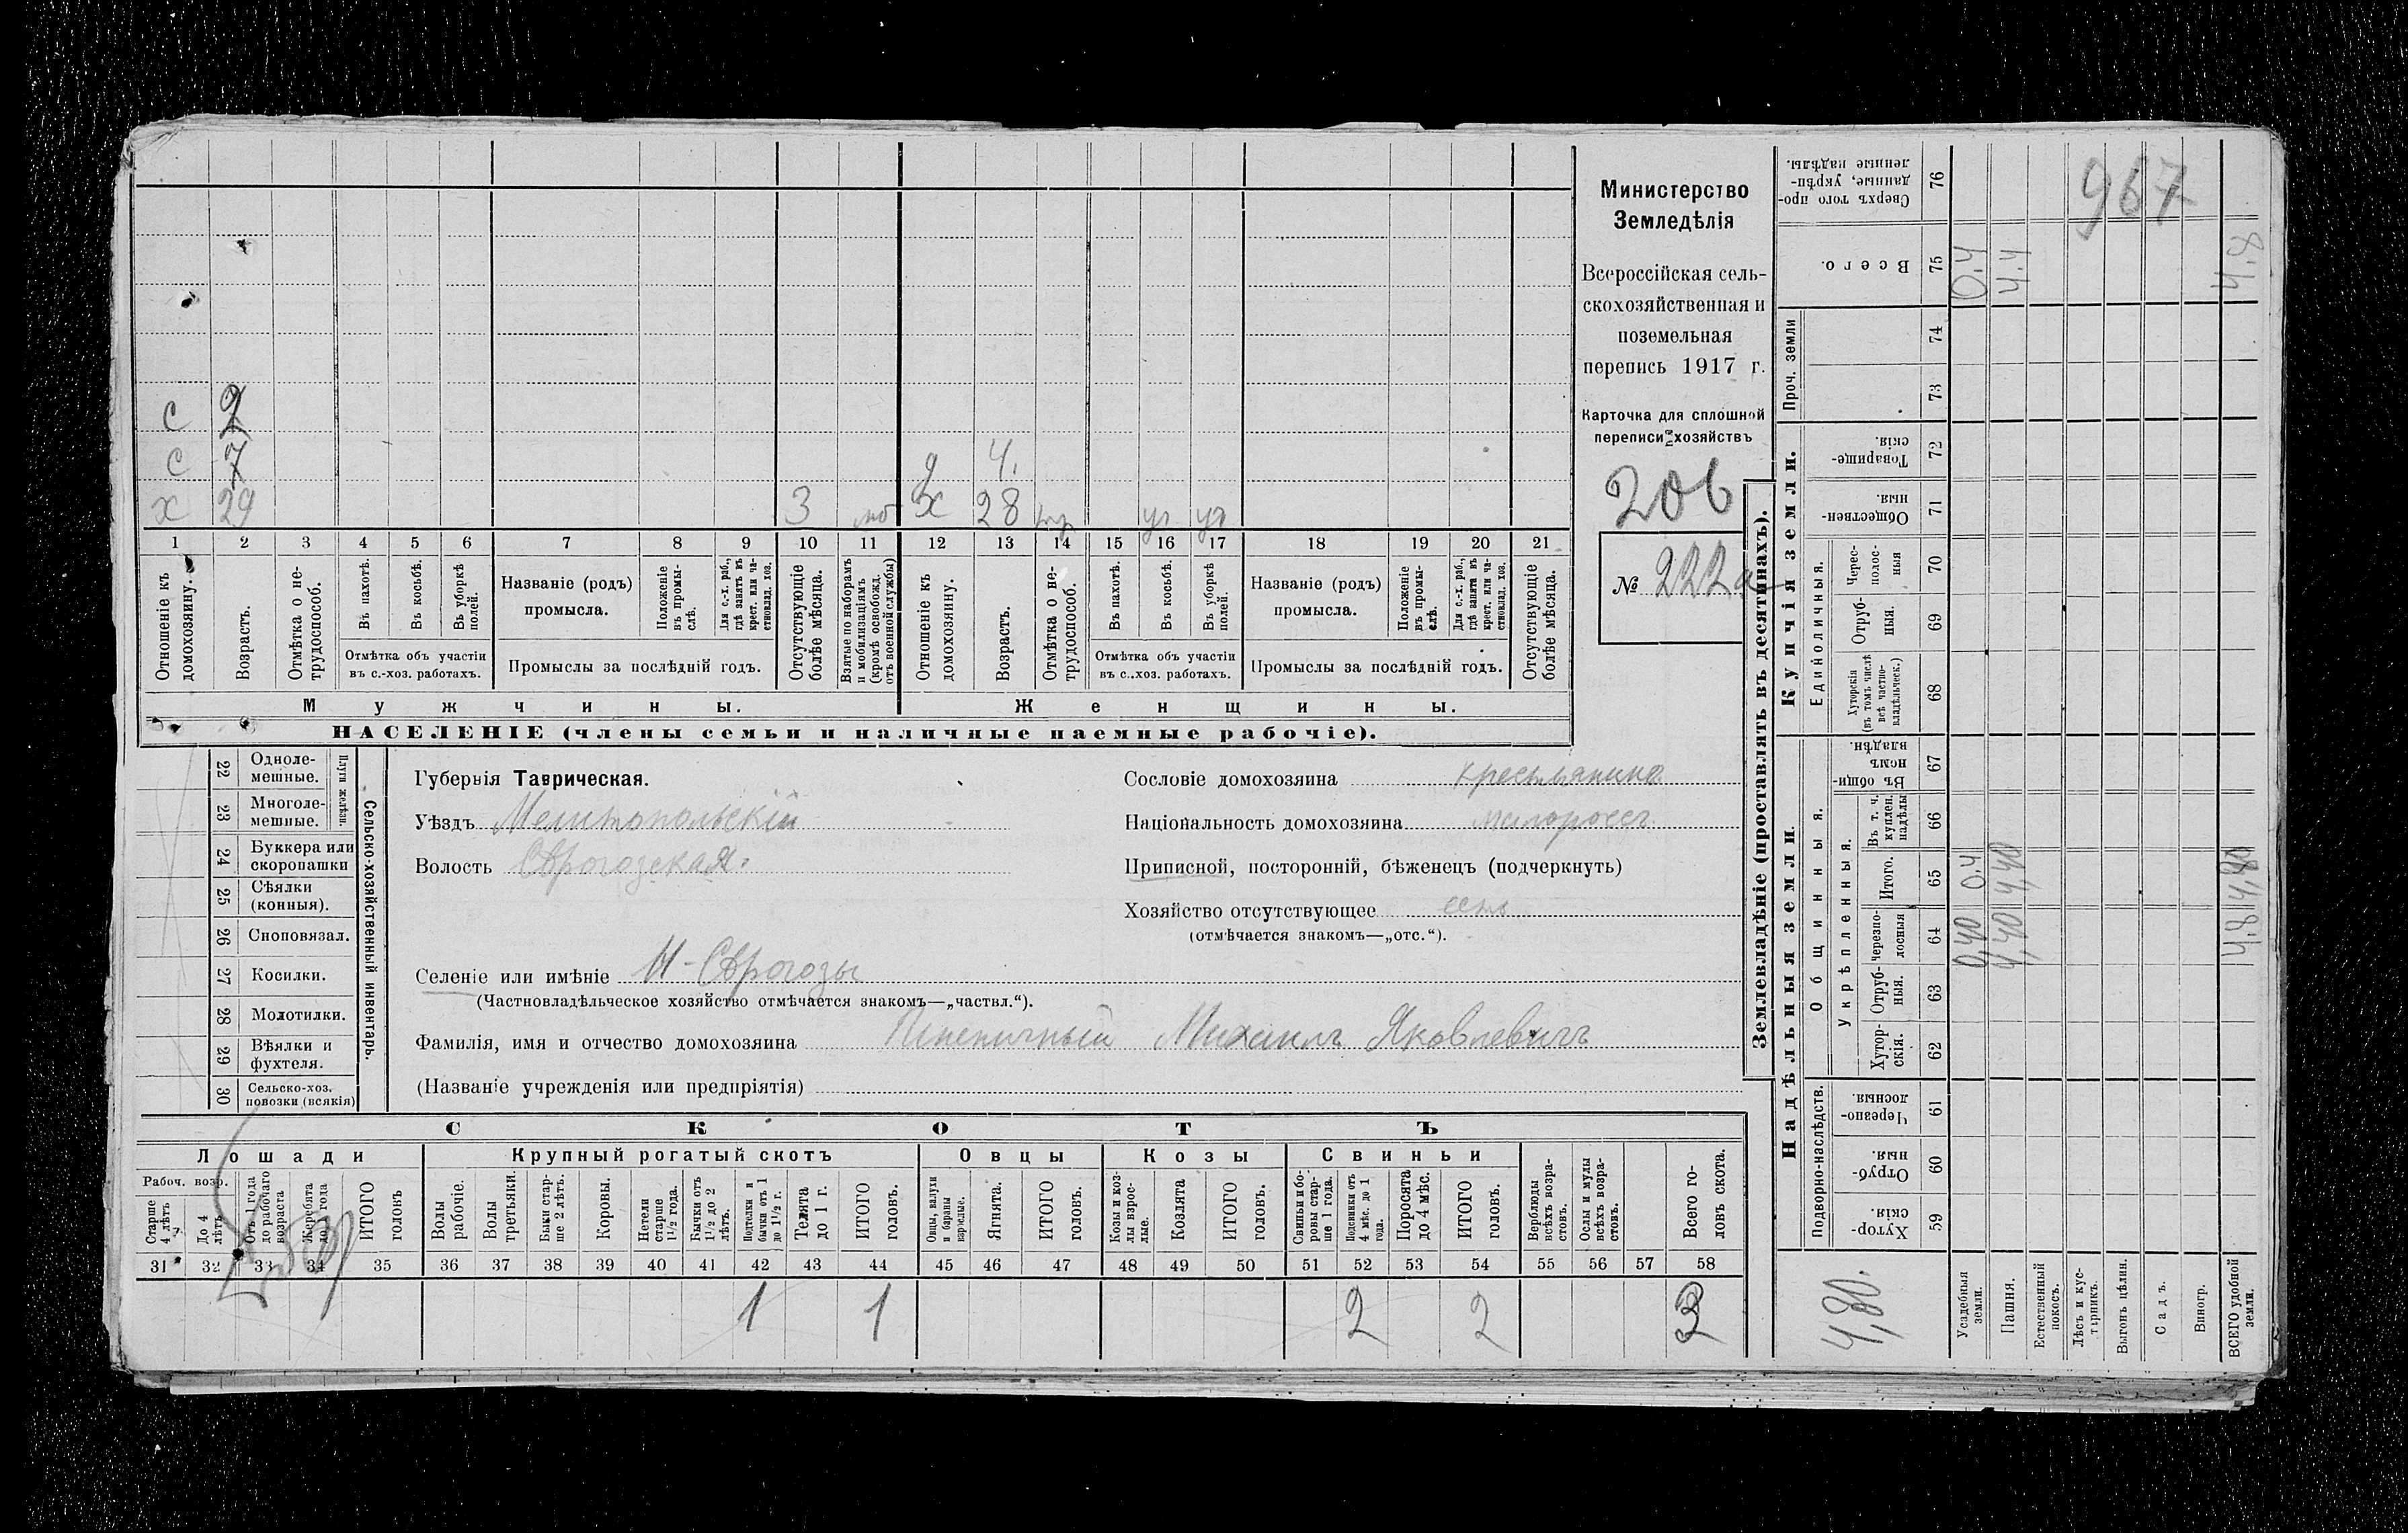 с 2
с 7 д 4.
х 29 3 моб х 28 уч уч
1 2 3 4 5 6 7 8 9 10 11 12 13 14 15 16 17 18 19 20 21
Отношеніе къ домохозяину.
Возрастъ.
Отмѣтка о нетрудоспособ.
Въ пахотѣ.
Въ косьбѣ.
Въ уборкѣ полей.
Отмѣтка объ участіи
въ с.-хоз. работахъ.
Названіе (родъ)
промысла.
Положеніе въ промыслѣ.
Для с.-х. раб., гдѣ занятъ въ крест. или частновлад. хоз.
Промыслы за послѣдній годъ.
Отсутствующіе болѣе мѣсяца.
Взятые по наборамъ и мобилизаціямъ (кромѣ освобожд. отъ военной службы)
Отношеніе къ домохозяину.
Возрастъ.
Отмѣтка о нетрудоспособ.
Въ пахотѣ.
Въ косьбѣ.
Въ уборкѣ полей.
Отмѣтка объ участіи
въ с..хоз. работахъ.
Названіе (родъ)
промысла.
Положеніе въ промыслѣ.
Для с.-х. раб., гдѣ занята въ крест. или частновлад. хоз.
Промыслы за послѣдній годъ.
Отсутствующіе болѣе мѣсяца.
Мужчины. Женщины.
НАСЕЛЕНІЕ (члены семьи и наличные наемные рабочіе).
Министерство
Земледѣлія
Всероссійская сель-
скохозяйственная и
поземельная
перепись 1917 г.
Карточка для сплошной
переписи хозяйствъ
206
№ 222а
22 Одноле-
мешные.
23 Многоле-
мешные.
Плуги желѣзн.
24 Буккера или
скоропашки
25 Сѣялки
(конныя).
26 Сноповязал.
27 Косилки.
28 Молотилки.
29 Вѣялки и
фухтеля.
30 Сельско-хоз.
повозки (всякія)
Сельско-хозяйственный инвентарь.
Губернія Таврическая.
Уѣздъ Мелитопольскій
Волость Сѣрогозская.
Селеніе или имѣніе Н-Сѣрогозы
(Частновладѣльческое хозяйство отмѣчается знакомъ—„частвл.“).
Фамилія, имя и отчество домохозяина Пшеничный Михаилъ Яковлевичъ
(Названіе учрежденія или предпріятія)
Сословіе домохозяина крестьянинъ
Національность домохозяина малороссъ
Приписной, посторонній, бѣженецъ (подчеркнуть)
Хозяйство отсутствующее есть
(отмѣчается знакомъ—„отс.“).
СКОТЪ
Лошади Крупный рогатый скотъ Овцы Козы Свиньи
Рабоч. возр.
Старше 4 лѣтъ
До 4 лѣтъ
Отъ 1 года до рабочаго возраста
Жеребята до 1 года
ИТОГО головъ
Волы рабочіе.
Волы третьяки.
Быки старше 2 лѣтъ.
Коровы.
Нетели старше 1½ года.
Бычки отъ 1½ до 2 лѣтъ.
Подтелки и бычки отъ 1 до 1½ г.
Телята до 1 г.
ИТОГО головъ.
Овцы, валухи и бараны взрослые.
Ягнята.
ИТОГО головъ.
Козы и козлы взрослые.
Козлята
ИТОГО головъ.
Свиньи и боровы старше 1 года.
Подсвинки отъ 4 мѣс. до 1 года.
Поросята до 4 мѣс.
ИТОГО головъ.
Верблюды всѣхъ возрастовъ.
Ослы и мулы всѣхъ возрастовъ.
Всего головъ скота.
31 32 33 34 35 36 37 38 39 40 41 42 43 44 45 46 47 48 49 50 51 52 53 54 55 56 57 58
1 1 2 2 3
Землевладѣніе (проставлять въ десятинахъ).
Купчія земли.
Надѣльныя земли.
Сверхъ того проданные, укрѣпленные надѣлы. 76
967
Всего. 75 0.4 4.4 4.8
Проч. земли
74
73
Товарищескія. 72
Общественныя. 71
Единоличныя.
Чересполосныя 70
Отрубныя. 69
Хуторскія (въ томъ числѣ всѣ частновладѣльческ.) 68
Общинныя.
Въ общинномъ владѣн. 67
Укрѣпленныя.
Въ т. ч. куплен. надѣлы 66
Итого. 65 0.4 4,40 4,80
Черезполосныя 64 0,40 4,40 4.8
Отрубныя. 63
Хуторскія. 62
Подворно-наслѣдств.
Черезполосныя 61
Отрубныя. 60
Хуторскія. 59
4,80.
Усадебныя земли.
Пашня.
Естественный покосъ.
Лѣсъ и кустарникъ.
Выгонъ цѣлин.
Садъ.
Виногр.
ВСЕГО удобной земли.